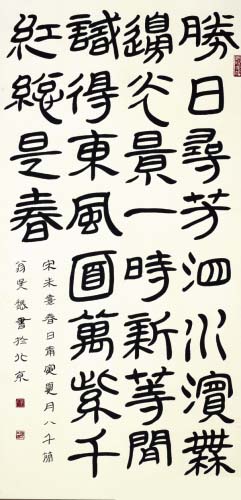 勝日尋芳泗水濱無
邊光景一時新等閒
識得東風面萬紫千
紅總是春
宋朱熹春日 夏月八千
翁 書於北京